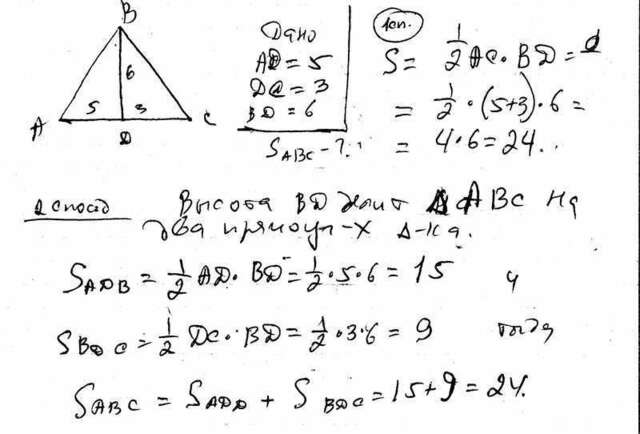 B
6
5 3
A D C
Дано
AD = 5
DC = 3
BD = 6
S ABC - ?
1сп.
S = 1/2 AC · BD =
= 1/2 · (5+3) · 6 =
= 4 · 6 = 24.
2 способ Высота BD делит Δ ABC на
два прямоуг-х Δ-ка.
S ADB = 1/2 AD · BD = 1/2 · 5 · 6 = 15 и
S BDC = 1/2 DC · BD = 1/2 · 3 · 6 = 9 тогда
S ABC = S ADD + S BDC = 15 + 9 = 24.